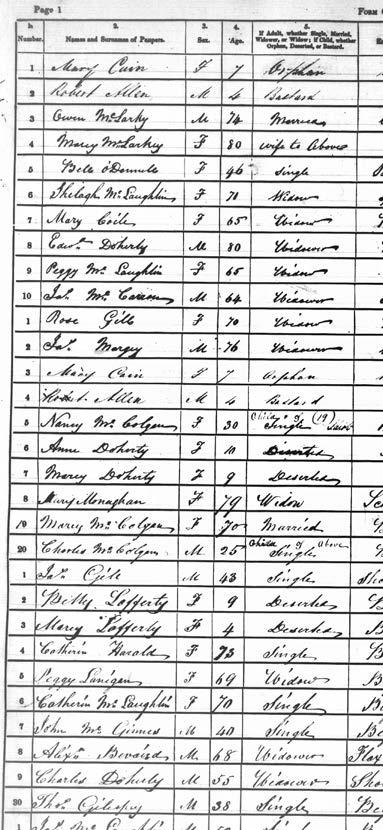 Page 1 FORM
No. 2. 3. 4. 5.
Number. Names and Surnames of Paupers. Sex. Age. If Adult, whether Single, Married, Widower, or Widow; if Child, whether Orphan, Deserted, or Bastard.
1 Mary Cain F 7 Orphan
2 Robert Allen M 4 Bastard
3 Owen McLarky M 74 Married
4 Marey McLarkey F 80 wife to Above
5 Bele O'Donnele F 46 Single
6 Shilagh McLaughlin F 70 Widow
7 Mary Coile F 65 Widow
8 Edwd. Doherty M 80 Widower
9 Peggy McLaughlin F 65 Widow
10 Jas. McCarron M 64 Widower
1 Rose Gill F 70 Widow
2 Jas. Margey M 76 Widower
3 Mary Cain F 7 Orphan
4 Robert Allen M 4 Bastard
5 Nancy McColgan F 30 Child of (19) Single
6 Anne Doherty F 10 Deserted
7 Marey Doherty F 9 Deserted
8 Mary Monaghan F 79 Widow
19 Marey McColgan F 70 Married
20 Charles McColgan M 25 Child of above Single
1 Jas. Gill M 43 Single
2 Billy Lafferty F 9 Deserted
3 Marey Lafferty F 4 Deserted
4 Catherin Harald F 73 Single
5 Peggy Lanigan F 69 Widow
6 Catherin McLaughlin F 70 Single
7 John McGinnes M 40 Single
8 Alexr. M 68 Widower Flax
9 Charles Doherty M 55 Widower Sho
30 Thos. Gilespey M 38 Single
1